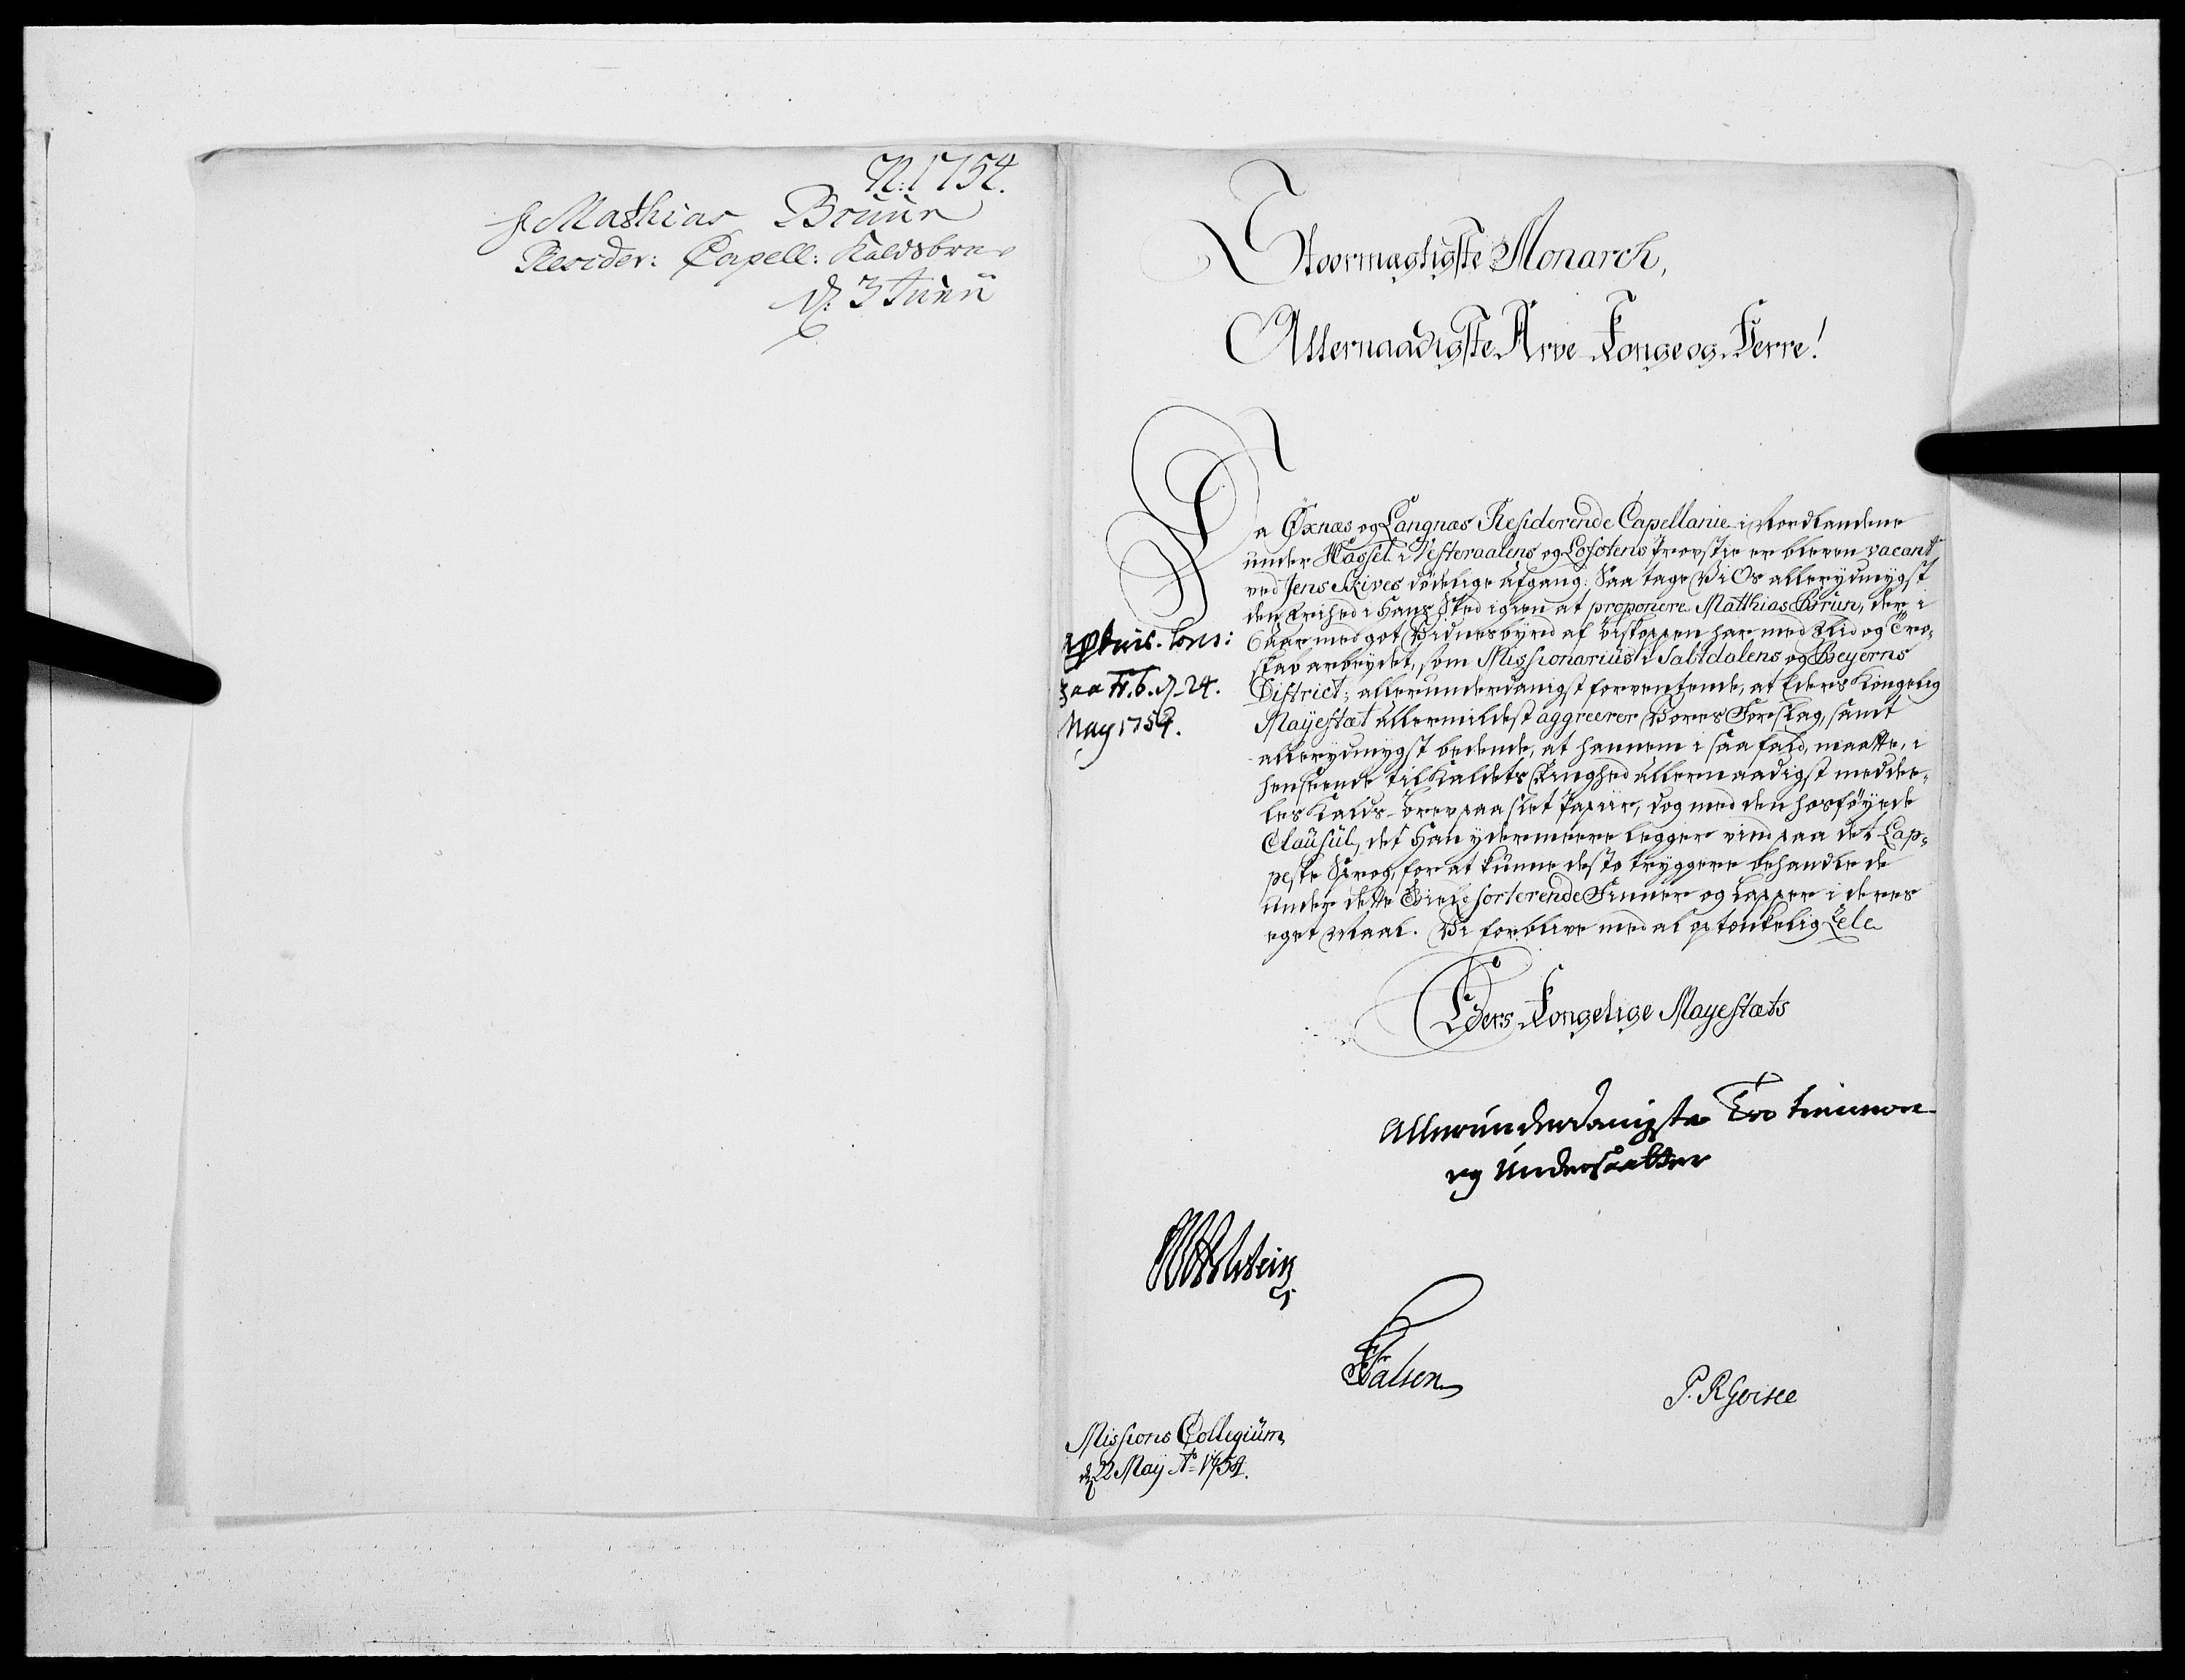 N: 1754.
hr Mathias Bruun
Resider: Capell: Kaldsbrev
d: 3 Junii
Stoermægtigste Monarch,
Allernaadigste Arve Konge og Herre!
Da Öxnæs og Langnæs Residerende Capellanie i Nordlandene
under Hassel i Vesteraalens og Lofotens Provstie er bleven vacant
ved Jens Skives dödelige Afgang; Saa tage Vi Os allerydmygst
den Frihed i Hans Sted igien at proponere Matthias Brun, der i
6 Aar med got Vidnesbyrd af Biskoppen har med Flid og Troe-
skab arbeydet, som Missionarius i Saltdalens og Beyerns
District; allerunderdanigst forventende, at Eders Kongelig
Mayestæt allermildest aggreerer Vores Forslag, samt
allerydmygst bedende, at hannem i saa fald, maatte, i
henseende til Kaldets Ringhed allernaadigst meddee-
les Kalds-Brev paa slet Papiir, dog med den hosföyede
Clausul, det Han ydermeere legger vind paa det Lap-
peske Sprog, for at kunne desto tryggere behandle de
under dette Field sorterende Finner og Lapper i deres
eget Maal. Vi forblive med al optænkelig Zele
Eders Kongelige Mayestæts
Allerunderdanigste Troe tienere
og Undersaatter
paa Fr.b. d. 24.
May 1754.
Holstein
Falsen
Missions Collegium
d. 22 May Ao 1754.